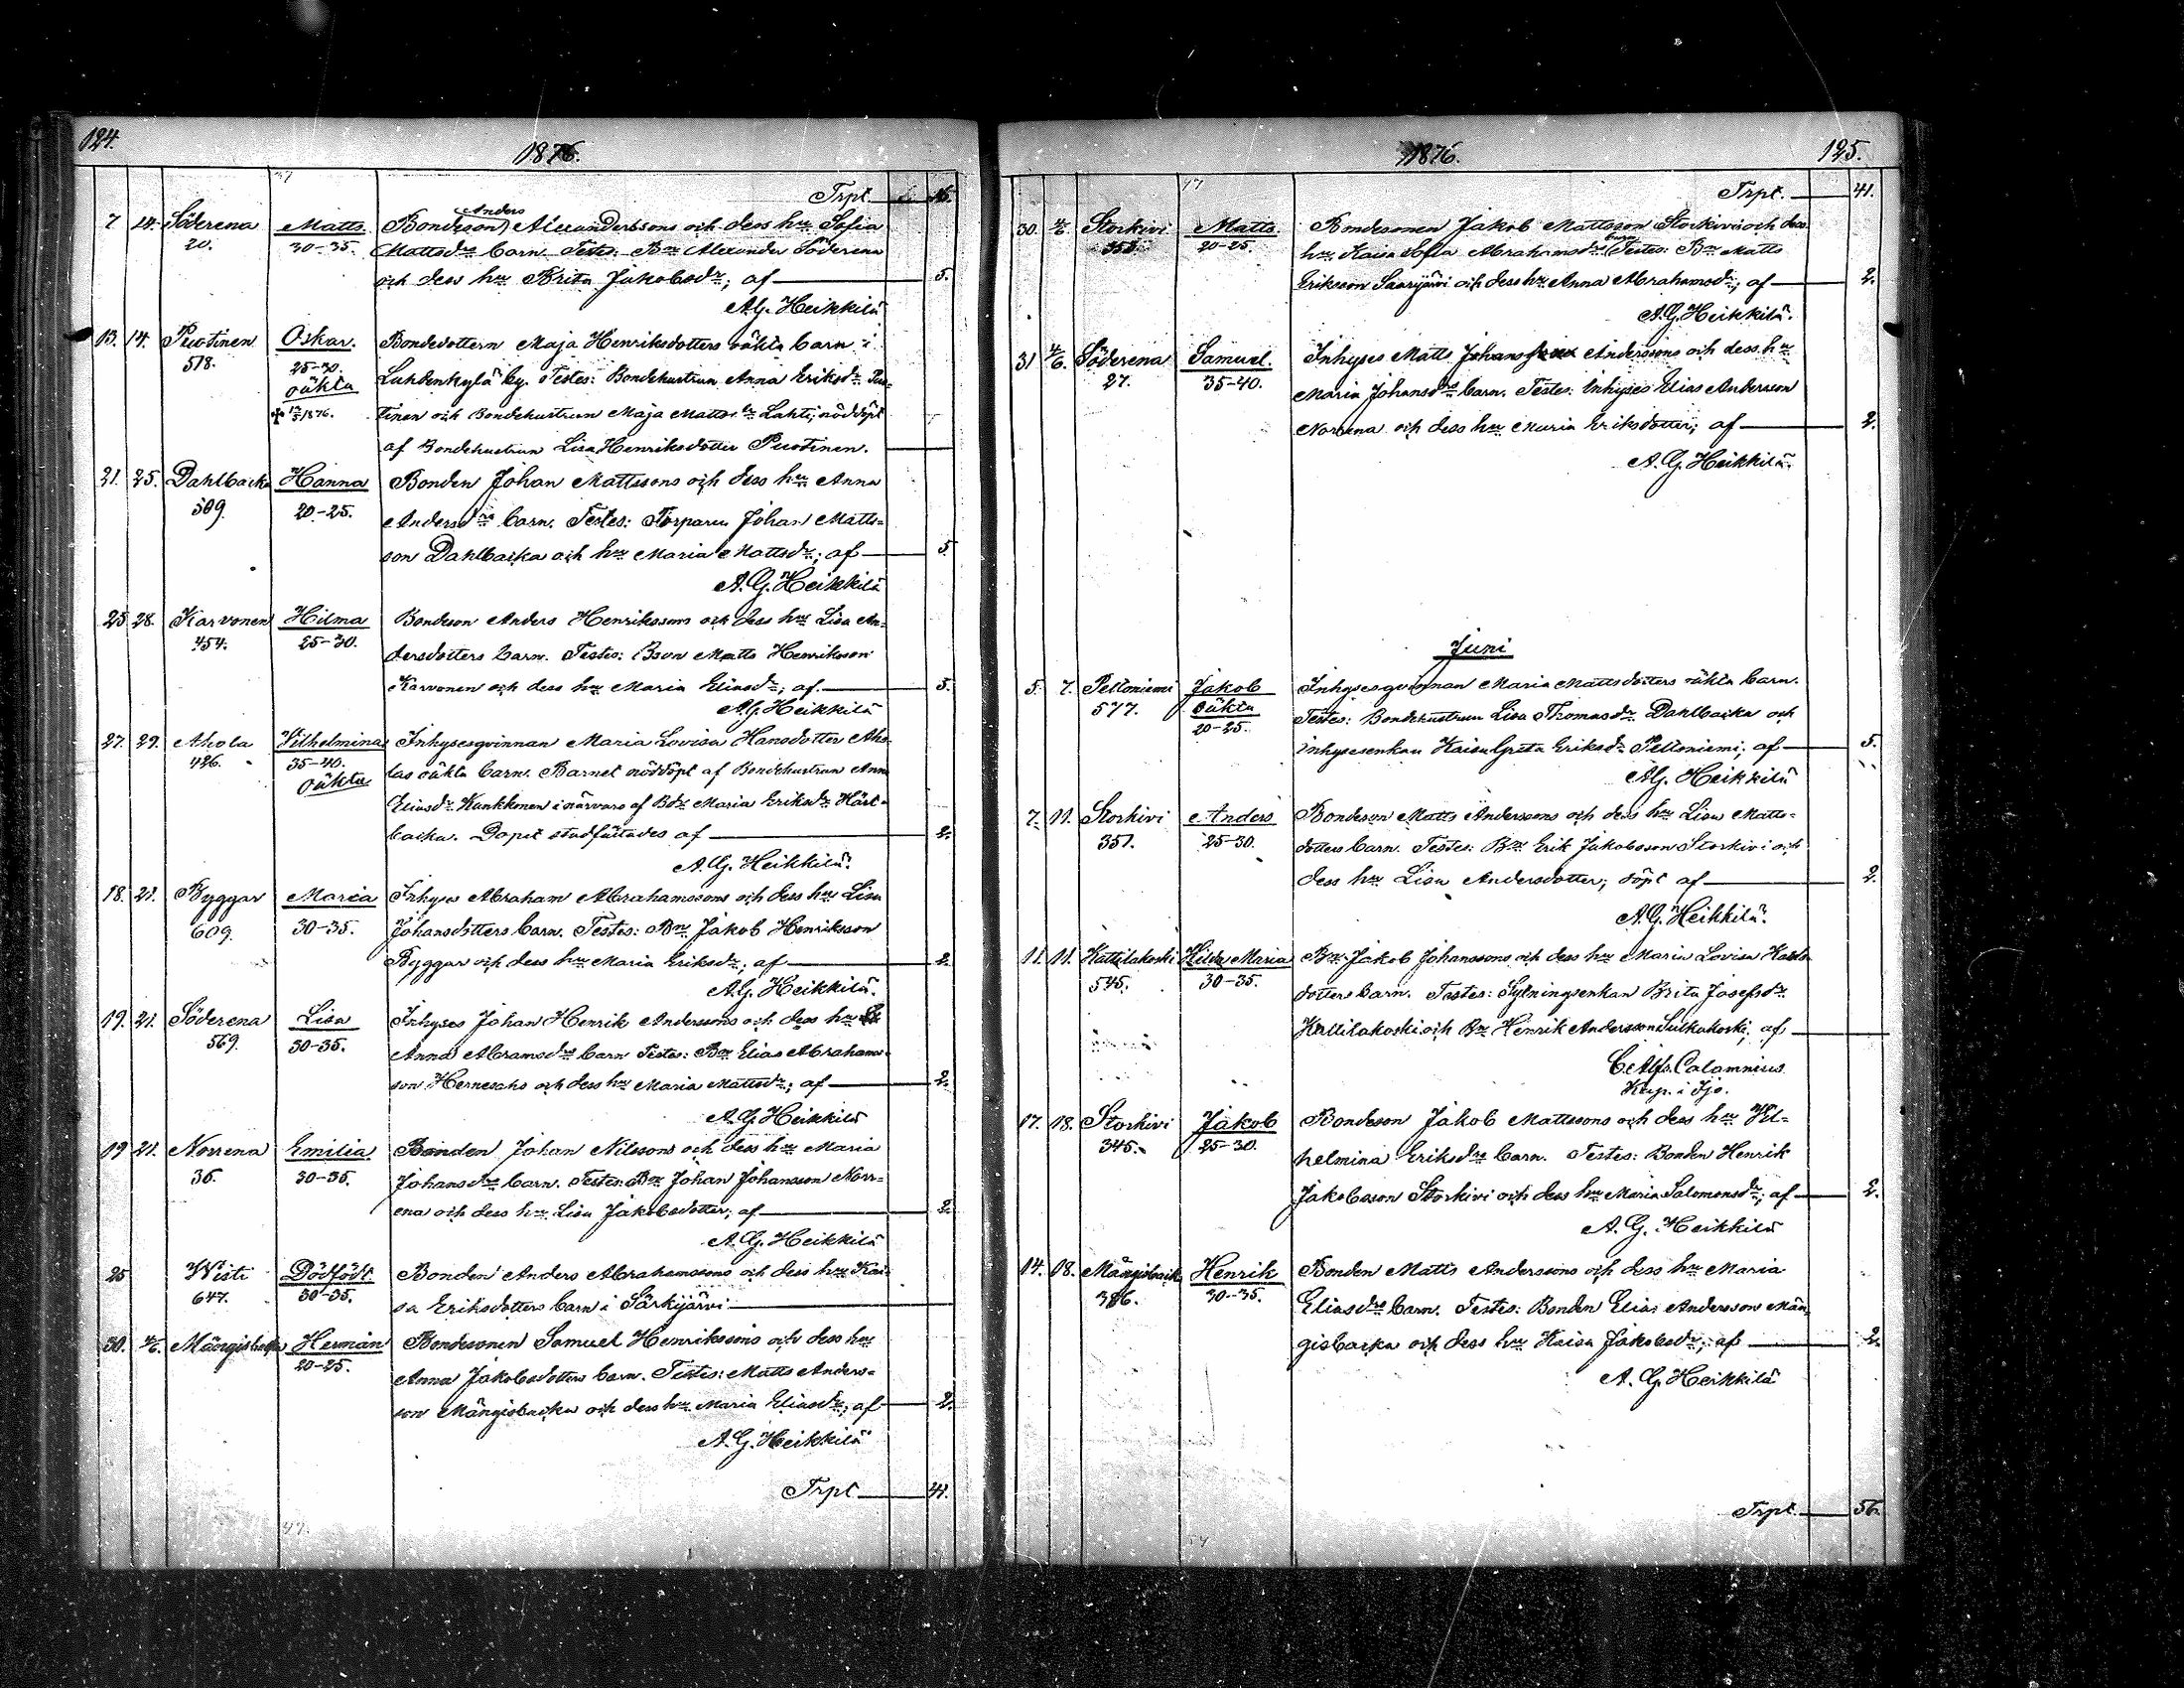 124.
1876.
Trpt 16.
7 14. Söderena Matts Bondeson Anders Alexanderssons och dess hru Sofia
20. 30-35. Mattsdrs barn. Testes: Bn Alexander Söderena
och dess hru Brita Jakobsdr; af 5.
A.G. Heikkilä
13. 14. Puotinen Oskar. Bondedottern Maja Henriksdotters oäkta barn i
578. 25-30. Luhdenkylä by. Testes: Bondehustrun Anna Eriksdr Puo-
oäkta
✠ 12/5 1876. tinen och Bondehustrun Maja Mattsdr Lahti; nöddöpt
af Bondehustrun Lisa Henriksdotter Puotinen.
21. 25. Dahlbacka Hanna Bonden Johan Mattssons och dess hru Anna
509. 20-25. Andersdrs barn. Testes: Torparen Johan Matts-
son Dahlbacka och hru Maria Mattsdr; af 5.
A.G. Heikkilä
25 28. Karvonen Hilma Bondeson Anders Henrikssons och dess hru Lisa An-
454. 25-30. dersdotters barn. Testes: Bson Matts Henriksson
Karvonen och dess hru Maria Eliasdr; af 5.
A.G. Heikkilä
27. 29. Ahola Vilhelmina Inhysesqvinnan Maria Lovisa Hansdotter Aho-
426. 35-40. las oäkta barn. Barnet nöddöpt af Bondehustrun Anna
oäkta
Eliasdr Kunkkonen i närvaro af Bdr Maria Eriksdr Härt-
backa. Dopet stadfästades af 2.
A.G. Heikkilä.
18. 21. Byggar Maria Inhyses Abraham Abrahamssons och dess hru Lisa
609. 30-35. Johansdotters barn. Testes: Bn Jakob Henriksson
Byggar och dess hru Maria Eriksdr; af 2.
A.G. Heikkilä.
19. 21. Söderena Lisa Inhyses Johan Henrik Anderssons och dess hru
569. 30-35. Anna Abramsdrs barn Testes: Bn Elias Abrahams-
son Hernesaho och dess hru Maria Mattsdr; af 2.
A.G. Heikkilä
19 21. Norrena Emilia Bonden Johan Nilssons och dess hru Maria
36. 30-35. Johansdrs barn. Testes: Bn Johan Johansson Norr-
ena och dess hru Lisa Jakobsdotter; af 2.
A.G. Heikkilä
25 Wisti Dödfödt Bonden Anders Abrahamssons och dess hru Kai-
647. 30-35. sa Eriksdotters barn i Särkijärvi
30. 4/6. Mängisbacka Herman Bondesonen Samuel Henrikssons och dess hru
20-25. Anna Jakobsdotters barn. Testes: Matts Anders-
son Mängisbacka och dess hru Maria Eliasdr; af 2.
A.G. Heikkilä
Trpt 41.
1876. 125.
Trpt. 41.
30. 4/6 Storkivi Matts. Bondesonen Jakob Mattsson Storkivis och dess
20-25. hru Kaisa Sofia Abrahamsdrs barn Testes: Bn Matts
Eriksson Saarijärvi och dess hru Anna Abrahamsdr; af 2.
A.G. Heikkilä.
31 4/6. Söderena Samuel. Inhyses Matts Johans Anderssons och dess hru
27. 35-40. Maria Johansdrs barn. Testes: Inhyses Elias Andersson
Norrena och dess hru Maria Eriksdotter; af 2.
A.G. Heikkilä.
Juni
5. 7. Peltoniemi Jakob Inhysesqvinnan Maria Mattsdotters oäkta barn.
577. oäkta Testes: Bondehustrun Lisa Thomasdr Dahlbacka och
20-25.
inhysesenkan Kaisa Greta Eriksdr Peltoniemi; af 5.
A.G. Heikkilä
7. 11. Storkivi Anders Bondeson Matts Anderssons och dess hru Lisa Matts-
351. 25-30. dotters barn. Testes: Bn Erik Jakobsson Storkivi och
dess hru Lisa Andersdotter; döpt af 2.
A.G. Heikkilä.
11. 11. Kattilakoski Hilda Maria Bn Jakob Johanssons och dess hru Maria Lovisa Karls-
545. 30-35. dotters barn. Testes: Sytningsenkan Brita Josefsdr
Kattilakoski och Bn Henrik Andersson Sulkakoski; af
C. Alfr. Calamnius
Kap. i Ijo.
17. 18. Storkivi Jakob Bondeson Jakob Mattssons och dess hru Vil-
345. 25-30. helmina Eriksdrs barn. Testes: Bonden Henrik
Jakobsson Storkivi och dess hru Maria Salomonsdr; af 2.
A.G. Heikkilä
14. 18. Mängisbacka Henrik Bonden Matts Anderssons och dess hru Maria
386. 30-35. Eliasdrs barn. Testes: Bonden Elias Andersson Män-
gisbacka och dess hru Kaisa Jakobsdr; af 2.
A.G. Heikkilä
Trpt. 56.